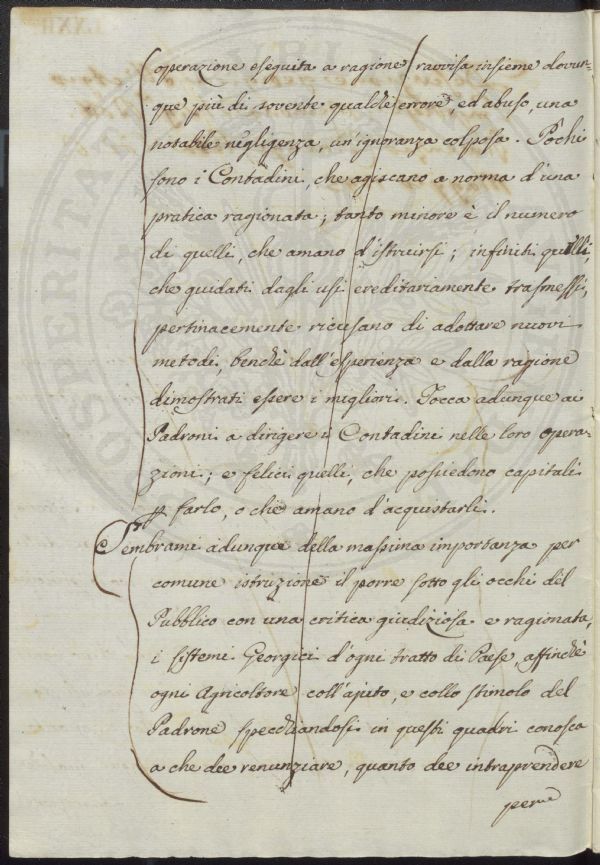 operazione eseguita a ragione ravvisa insieme dovun-
que più di sovente qualche errore, ed abuso, una
notabile negligenza, un'ignoranza colposa. Pochi
sono i Contadini, che agiscano a norma d'una
pratica ragionata; tanto minore è il numero
di quelli, che amano d'istruirsi; infiniti quelli,
che guidati dagli usi ereditariamente trasmessi,
pertinacemente ricusano di adottare nuovi
metodi, benchè dall'esperienza e dalla ragione
dimostrati essere i migliori. Tocca adunque ai
Padroni a dirigere i Contadini nelle loro opera-
zioni; e felici quelli, che posseedono capitali
p farlo, o che amano d'acquistarli.
Sembrami adunque della massima importanza per
comune istruzione il porre sotto gli occhi del
Pubblico con una critica giudiziosa e ragionata,
i sistemi Georgici d'ogni tratto di Paese, affinchè
ogni Agricoltore coll'ajuto, e collo stimolo del
Padrone specchiandosi in questi quadri conosca
a che dee renunziare, quanto dee intraprendere
per